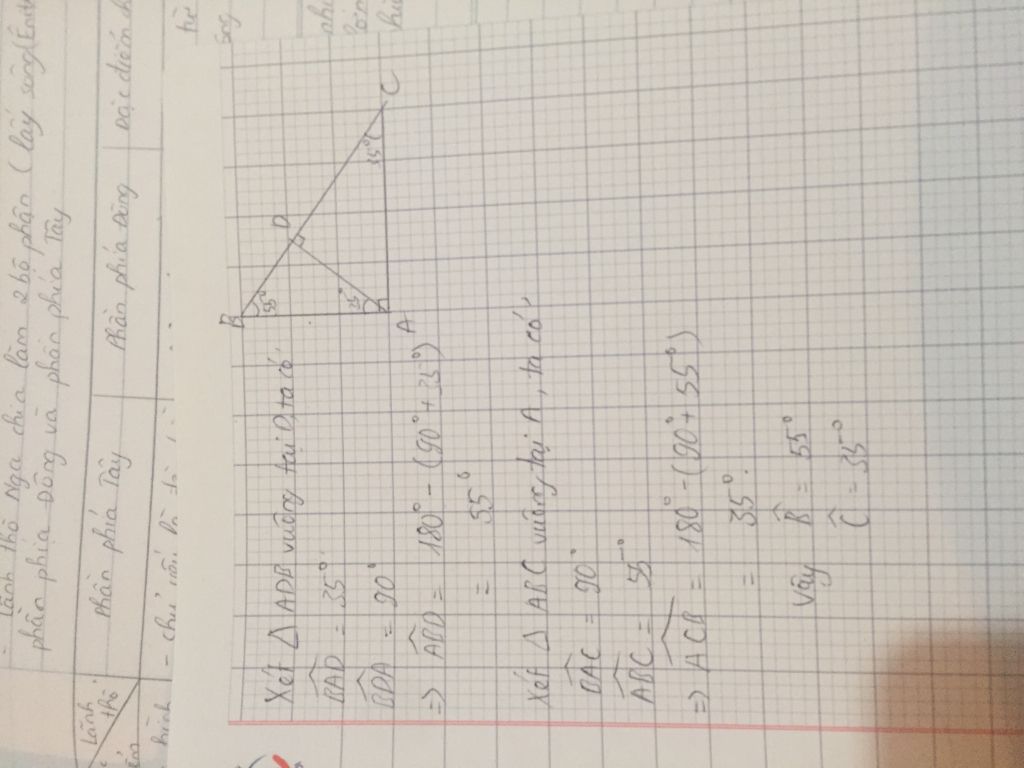 Lãnh thổ Nga chia làm 2 bộ phận (lấy sông
phần phía Đông và phần phía Tây
Lãnh thổ
Phần phía Tây
Phần phía Đông
Đặc điểm
B
D
C
A
55°
35°
35°
Xét Δ ADB vuông tại D, ta có
BAD = 35°
BDA = 90°
=> ABD = 180° - (90° + 35°)
= 55°
Xét Δ ABC vuông tại A, ta có
BAC = 90°
ABC = 55°
=> ACB = 180° - (90° + 55°)
= 35°
Vậy B = 55°
C = 35°